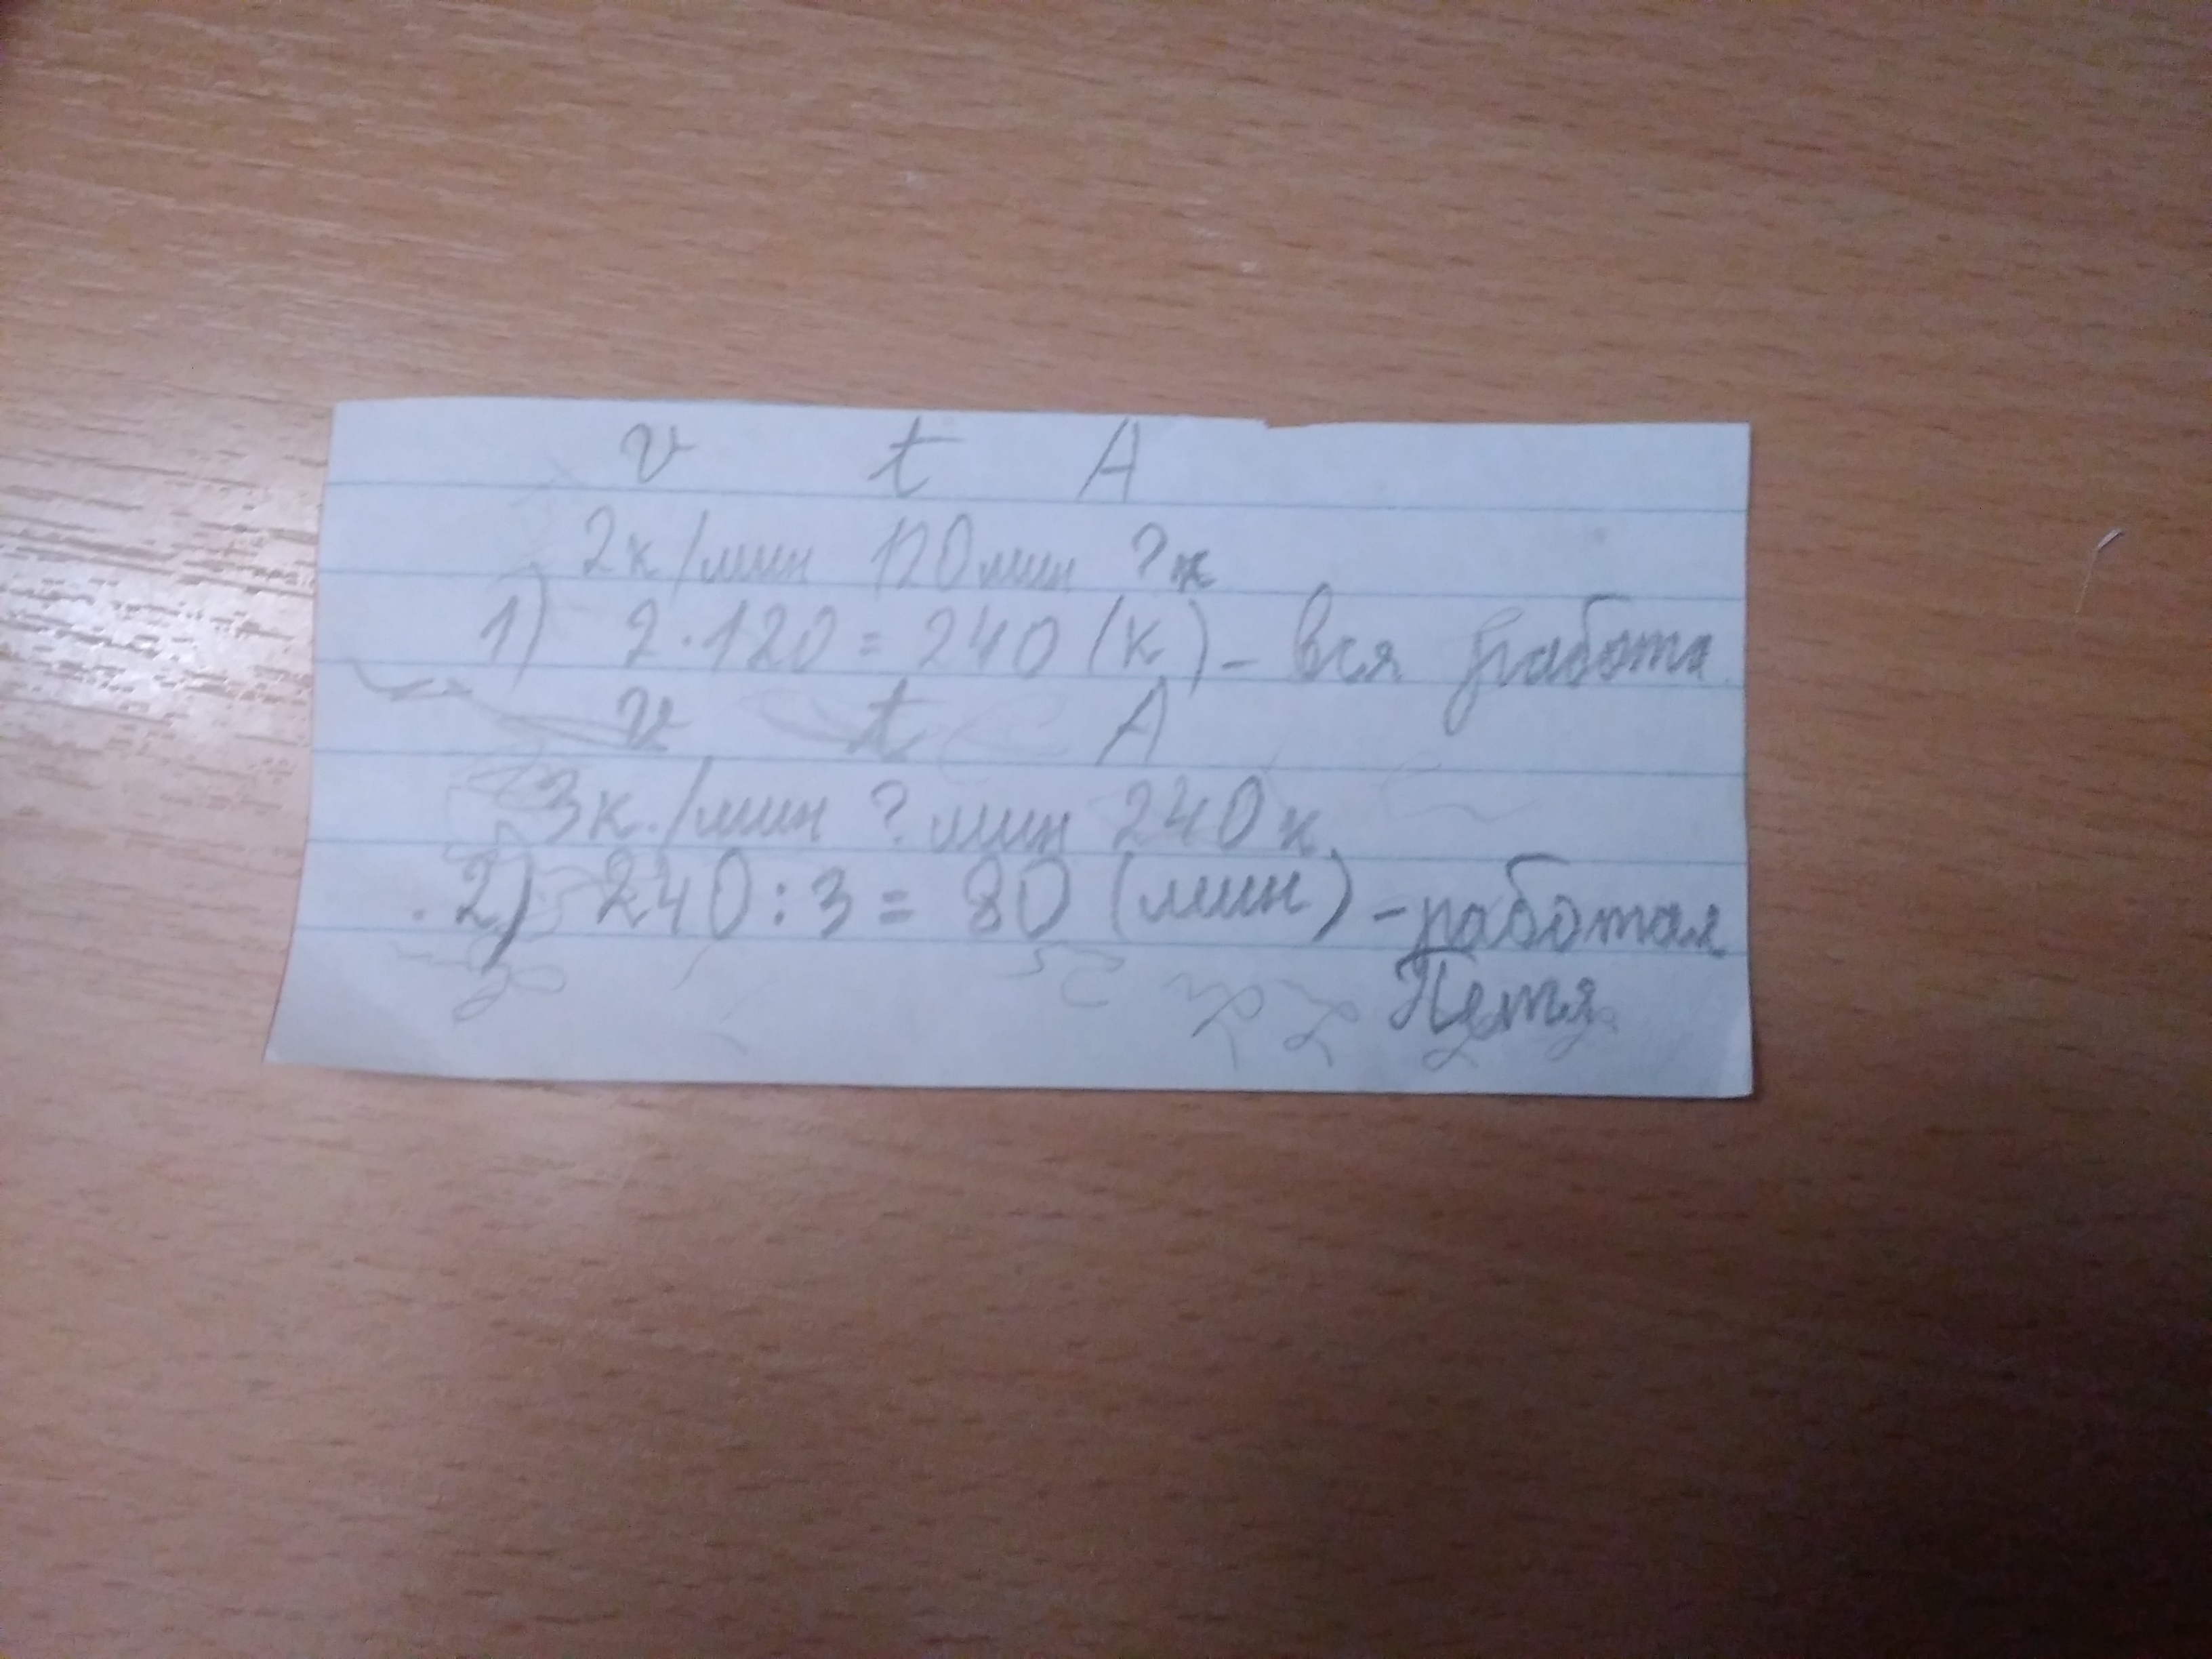 v t A
2к/мин 120мин ?к
1) 2·120=240 (к)- вся работа
v t A
3к./мин ?мин 240к.
2) 240:3= 80 (мин) -работал
Петя